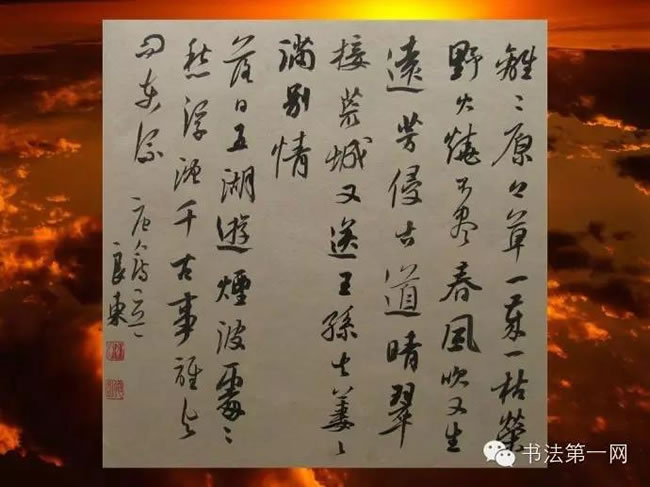 離〻原上草一歲一枯榮
野火燒不盡春風吹又生
遠芳侵古道晴翠
接荒城又送王孫去萋〻
滿別情
落日五湖遊煙波處〻
愁浮沉千古事誰与
問東流
良東
书法第一网